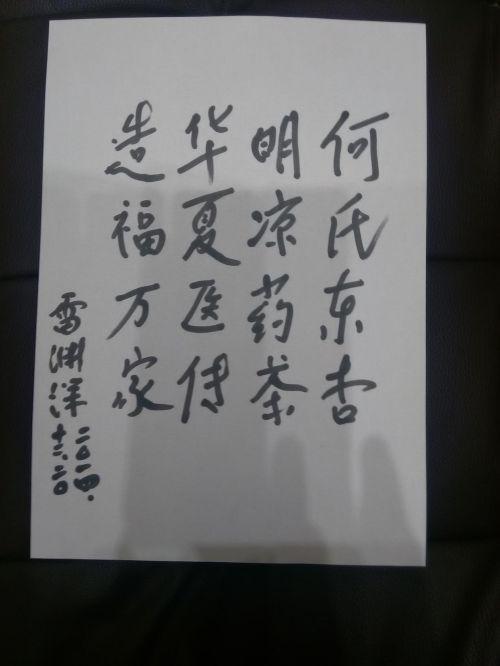 何氏东杏
明凉药茶
华夏医传
造福万家
雷渊洋
二〇一四.
十二.二〇